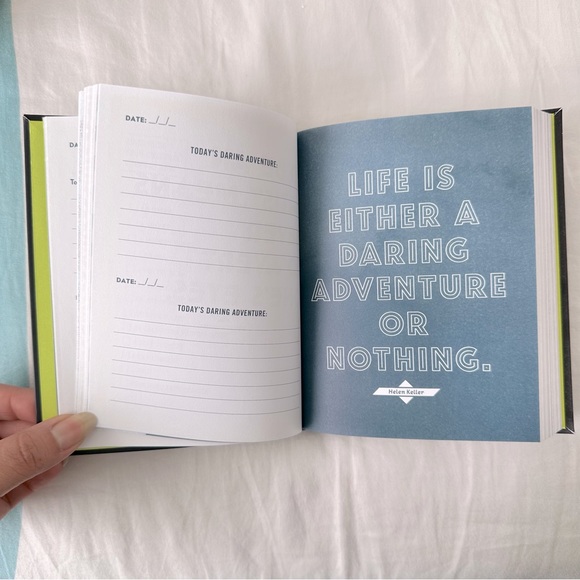 DATE: __/__/__
TODAY'S DARING ADVENTURE:
DATE: __/__/__
TODAY'S DARING ADVENTURE:
LIFE IS
EITHER A
DARING
ADVENTURE
OR
NOTHING.
Helen Keller